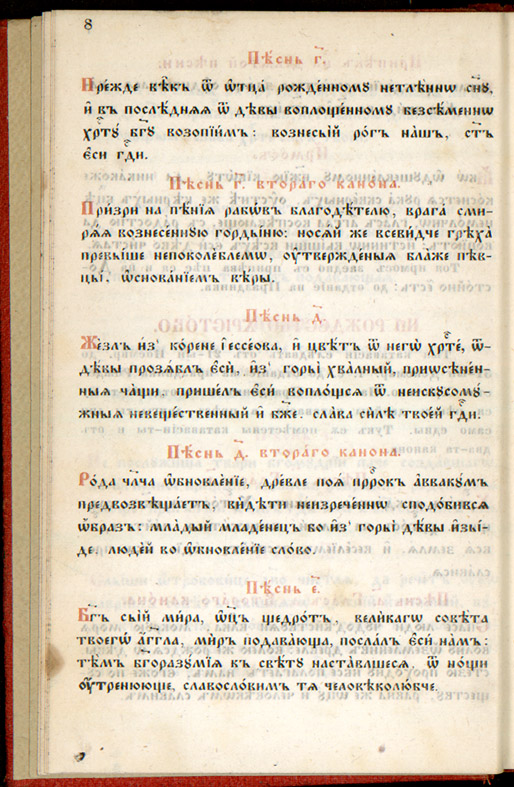 8
Пѣснь г҃.
Прéжде вѣ̑къ ѿ ѻ҆ц҃а̀ рождéнному нетлѣ́ннѡ сн҃у,
и҆ въ послѣ̑дняя ѿ дѣ́вы воплощéнному безсѣ́меннѡ
хрⷭ҇ту̀ бг҃у возопїи́мъ: вознесы́й рóгъ на́шъ, ст҃ъ
є҆сѝ гдⷭ҇и.
Пѣснь г҃. вторáго канóна.
При́зри на пѣ̑нїя рабѡ́въ благодѣ́телю, врага̀ сми-
ря́я вознесéнную горды́ню: нося́й же всеви́дче грѣха̀
превы́ше непоколéблемѡ, ᲂу҆тверждéныя блáже пѣв-
цы̀, ѡ҆снова́нїемъ вѣ́ры.
Пѣснь д҃.
Жéзлъ и҆з̾ кóрене і҆ессéова, и҆ цвѣ́тъ ѿ негѡ̀ хрⷭ҇тѐ, ѿ-
дѣ́вы прозя́блъ є҆сѝ, и҆з̾ горы̀ хва́лный, приѡсѣнéн-
ныя ча́щи, пришéлъ є҆сѝ вопло́щся ѿ неискусому́-
жныя невещéственный и҆ бж҃е. сла́ва си́лѣ твоéй гдⷭ҇и.
Пѣснь д҃. вторáго канóна.
Рóда чл҃ча ѡ҆бновлéнїе, дрéвле поя̀ прⷪ҇рокъ а҆ввакýмъ
предвозвѣща́етъ, ви́дѣти неизречéннѡ сподóбився
ѡ҆́бразъ: млáдый младéнецъ бо и҆з̾ горы̀ дѣ́вы и҆зы́-
де, людéй во ѡ҆бновлéнїе слóво.
Пѣснь є҃.
Бг҃ъ сы́й ми́ра, ѻ҆ц҃ъ щедрóтъ, вели́кагѡ совѣ́та
твоегѡ̀ а҆́гг҃ла, ми́ръ подава́юща, посла́лъ є҆сѝ на́мъ:
тѣ́мъ бг҃оразу́мїя къ свѣ́ту наста́вльшеся, ѿ нóщи
ᲂу҆́тренюющe, славослóвимъ тя̀ человѣколю́бче.